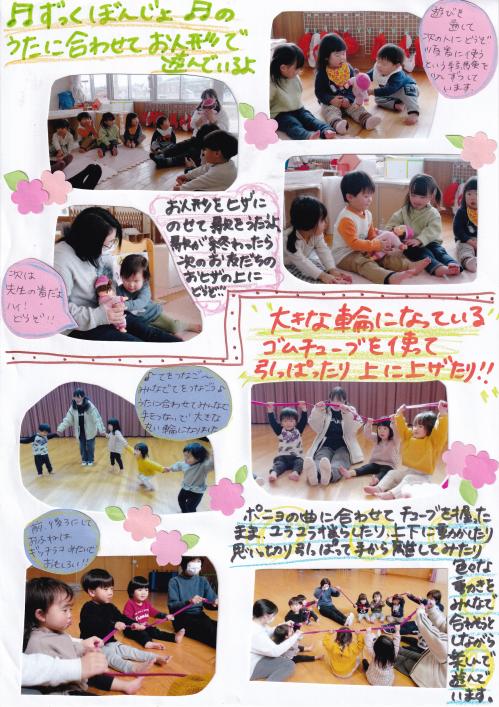 ♬ずっくぼんじょ♬の
うたに合わせてお人形で
遊んでいるよ
遊びを
通して
次の人にどうぞ
順番に使う
という経験を
少しずつして
います。
お人形をヒザに
のせて歌をうたうよ
歌が終わったら
次のお友だちの
おヒザの上に
どうぞ…
次は
先生の番だよ
ハイ!
どうぞ!!
大きな輪になっている
ゴムチューブを使って
引っぱったり上に上げたり!!
♪てをつなご〜
みんなでてをつなごう♪
うたに合わせてみんなで
手をつないで大きな
丸い輪になりました
ポニョの曲に合わせてチューブを握った
まま、ユラユラ揺らしたり、上下に動かしたり
思いっきり引っぱって手から離してみたり
色々な
動きを
みんなで
合わそうと
しながら
楽しんで
遊んで
います。
前、後ろにして
おふねは
ギッチラコみたいで
おもしろい!!